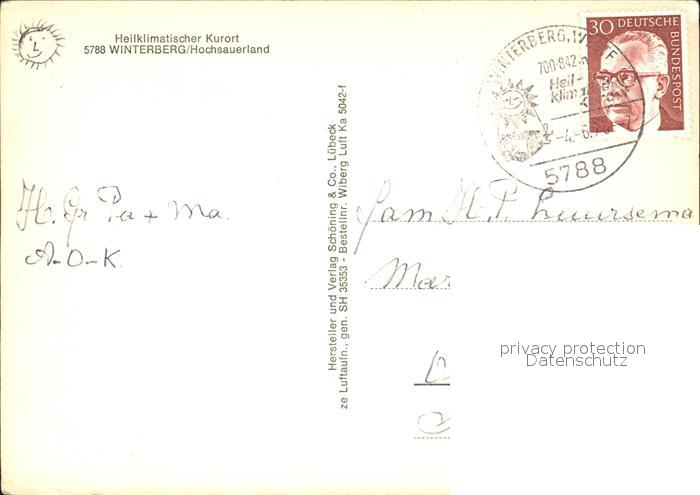 Heilklimatischer Kurort
5788 WINTERBERG/Hochsauerland
H. Gr Pa + Ma.
A-O-K.
Hersteller und Verlag Schöning & Co., Lübeck
ze Luftaufn., gen. SH 35353 - Bestellnr. Wiberg Luft Ka 5042-f
WINTERBERG, WESTF
700-842 m
Heil-
klima
-4.-6.7
5788
30 DEUTSCHE
BUNDESPOST
Fam H.P. Luursema
Mar
privacy protection
Datenschutz